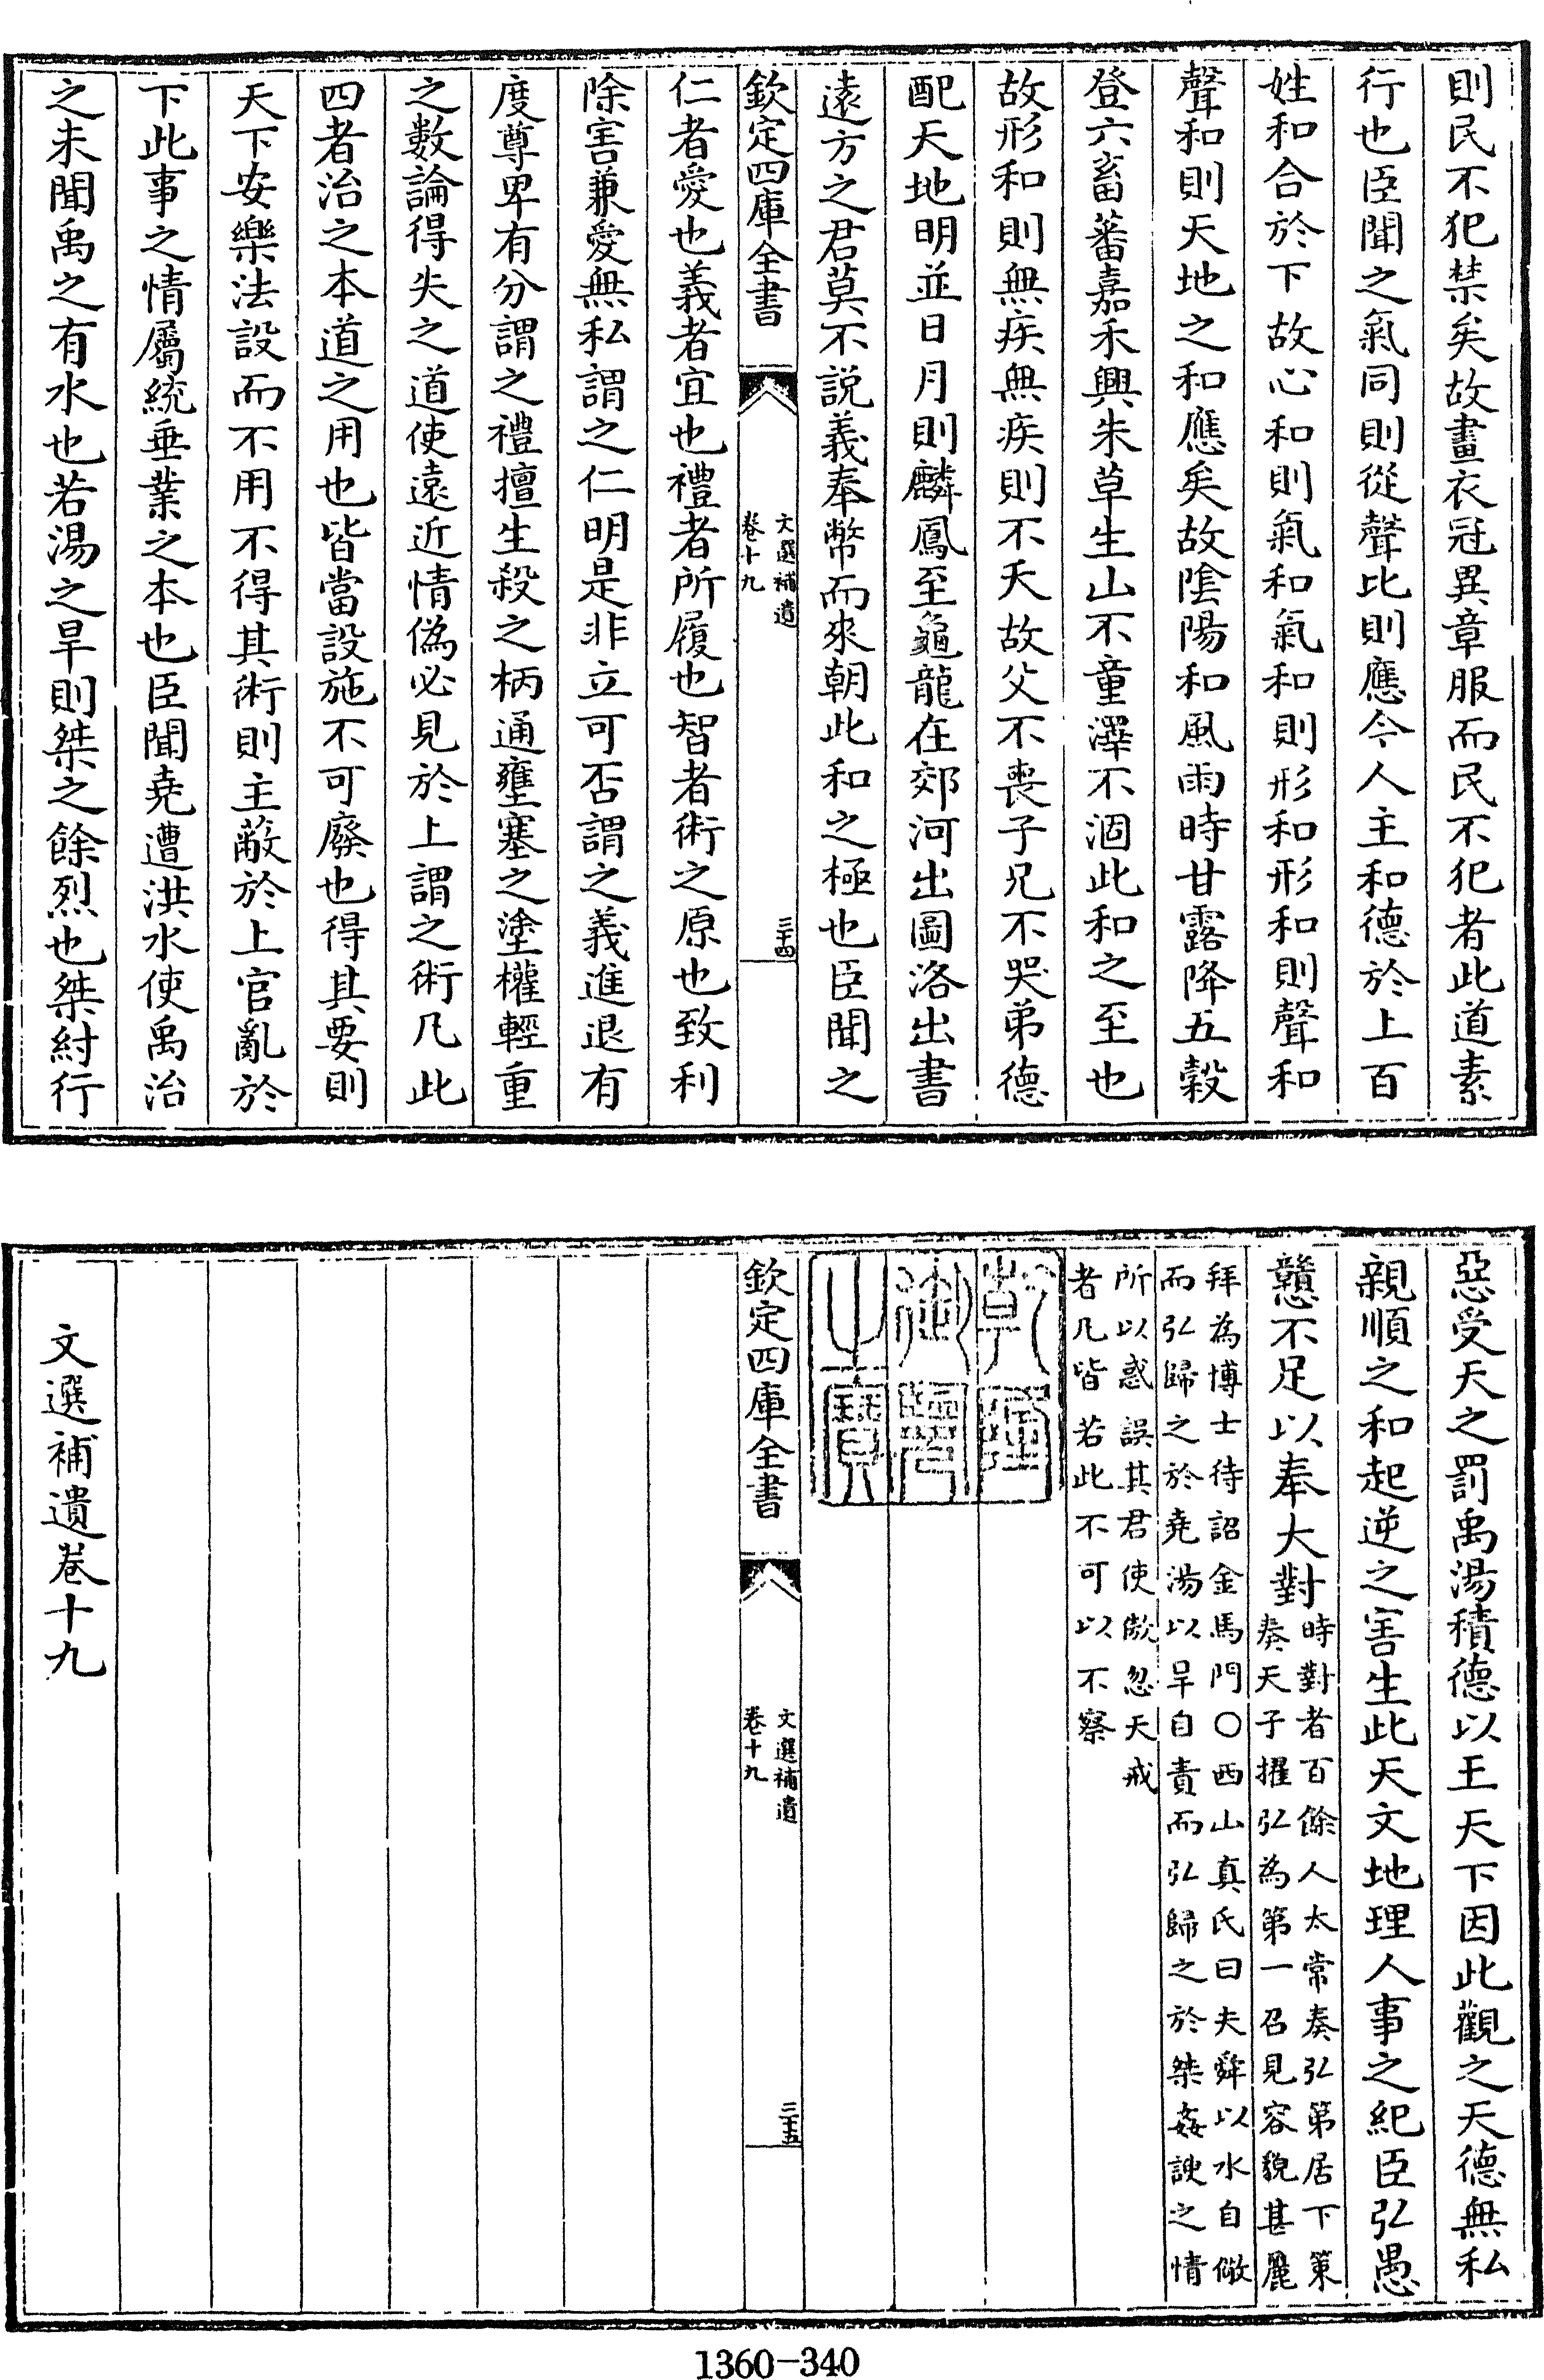 則民不犯禁矣故畫衣冠異章服而民不犯者此道素
行也臣聞之氣同則從聲比則應今人主和德於上百
姓和合於下故心和則氣和氣和則形和形和則聲和
聲和則天地之和應矣故隂陽和風雨時甘露降五穀
登六畜蕃嘉禾興朱草生山不童澤不涸此和之至也
故形和則無疾無疾則不夭故父不喪子兄不哭弟德
配天地明並日月則麟鳳至龜龍在郊河出圖洛出書
遠方之君莫不説義奉幣而來朝此和之極也臣聞之
欽定四庫全書
文選補遺
卷十九
三十四
仁者愛也義者宜也禮者所履也智者術之原也致利
除害兼愛無私謂之仁明是非立可否謂之義進退有
度尊卑有分謂之禮擅生殺之柄通壅塞之塗權輕重
之數論得失之道使遠近情偽必見於上謂之術凡此
四者治之本道之用也皆當設施不可廢也得其要則
天下安樂法設而不用不得其術則主蔽於上官亂於
下此事之情屬統垂業之本也臣聞堯遭洪水使禹治
之未聞禹之有水也若湯之旱則桀之餘烈也桀紂行
惡受天之罰禹湯積德以王天下因此觀之天德無私
親順之和起逆之害生此天文地理人事之紀臣弘愚
戇不足以奉大對
時對者百餘人太常奏弘第居下策
奏天子擢弘為第一召見容貌甚麗
拜為博士待詔金馬門○西山真氏曰夫舜以水自儆
而弘歸之於堯湯以旱自責而弘歸之於桀姦諛之情
所以惑誤其君使傲忽天戒
者凡皆若此不可以不察
乾隆
御覽
之寶
欽定四庫全書
文選補遺
卷十九
三十五
文選補遺卷十九
1360-340